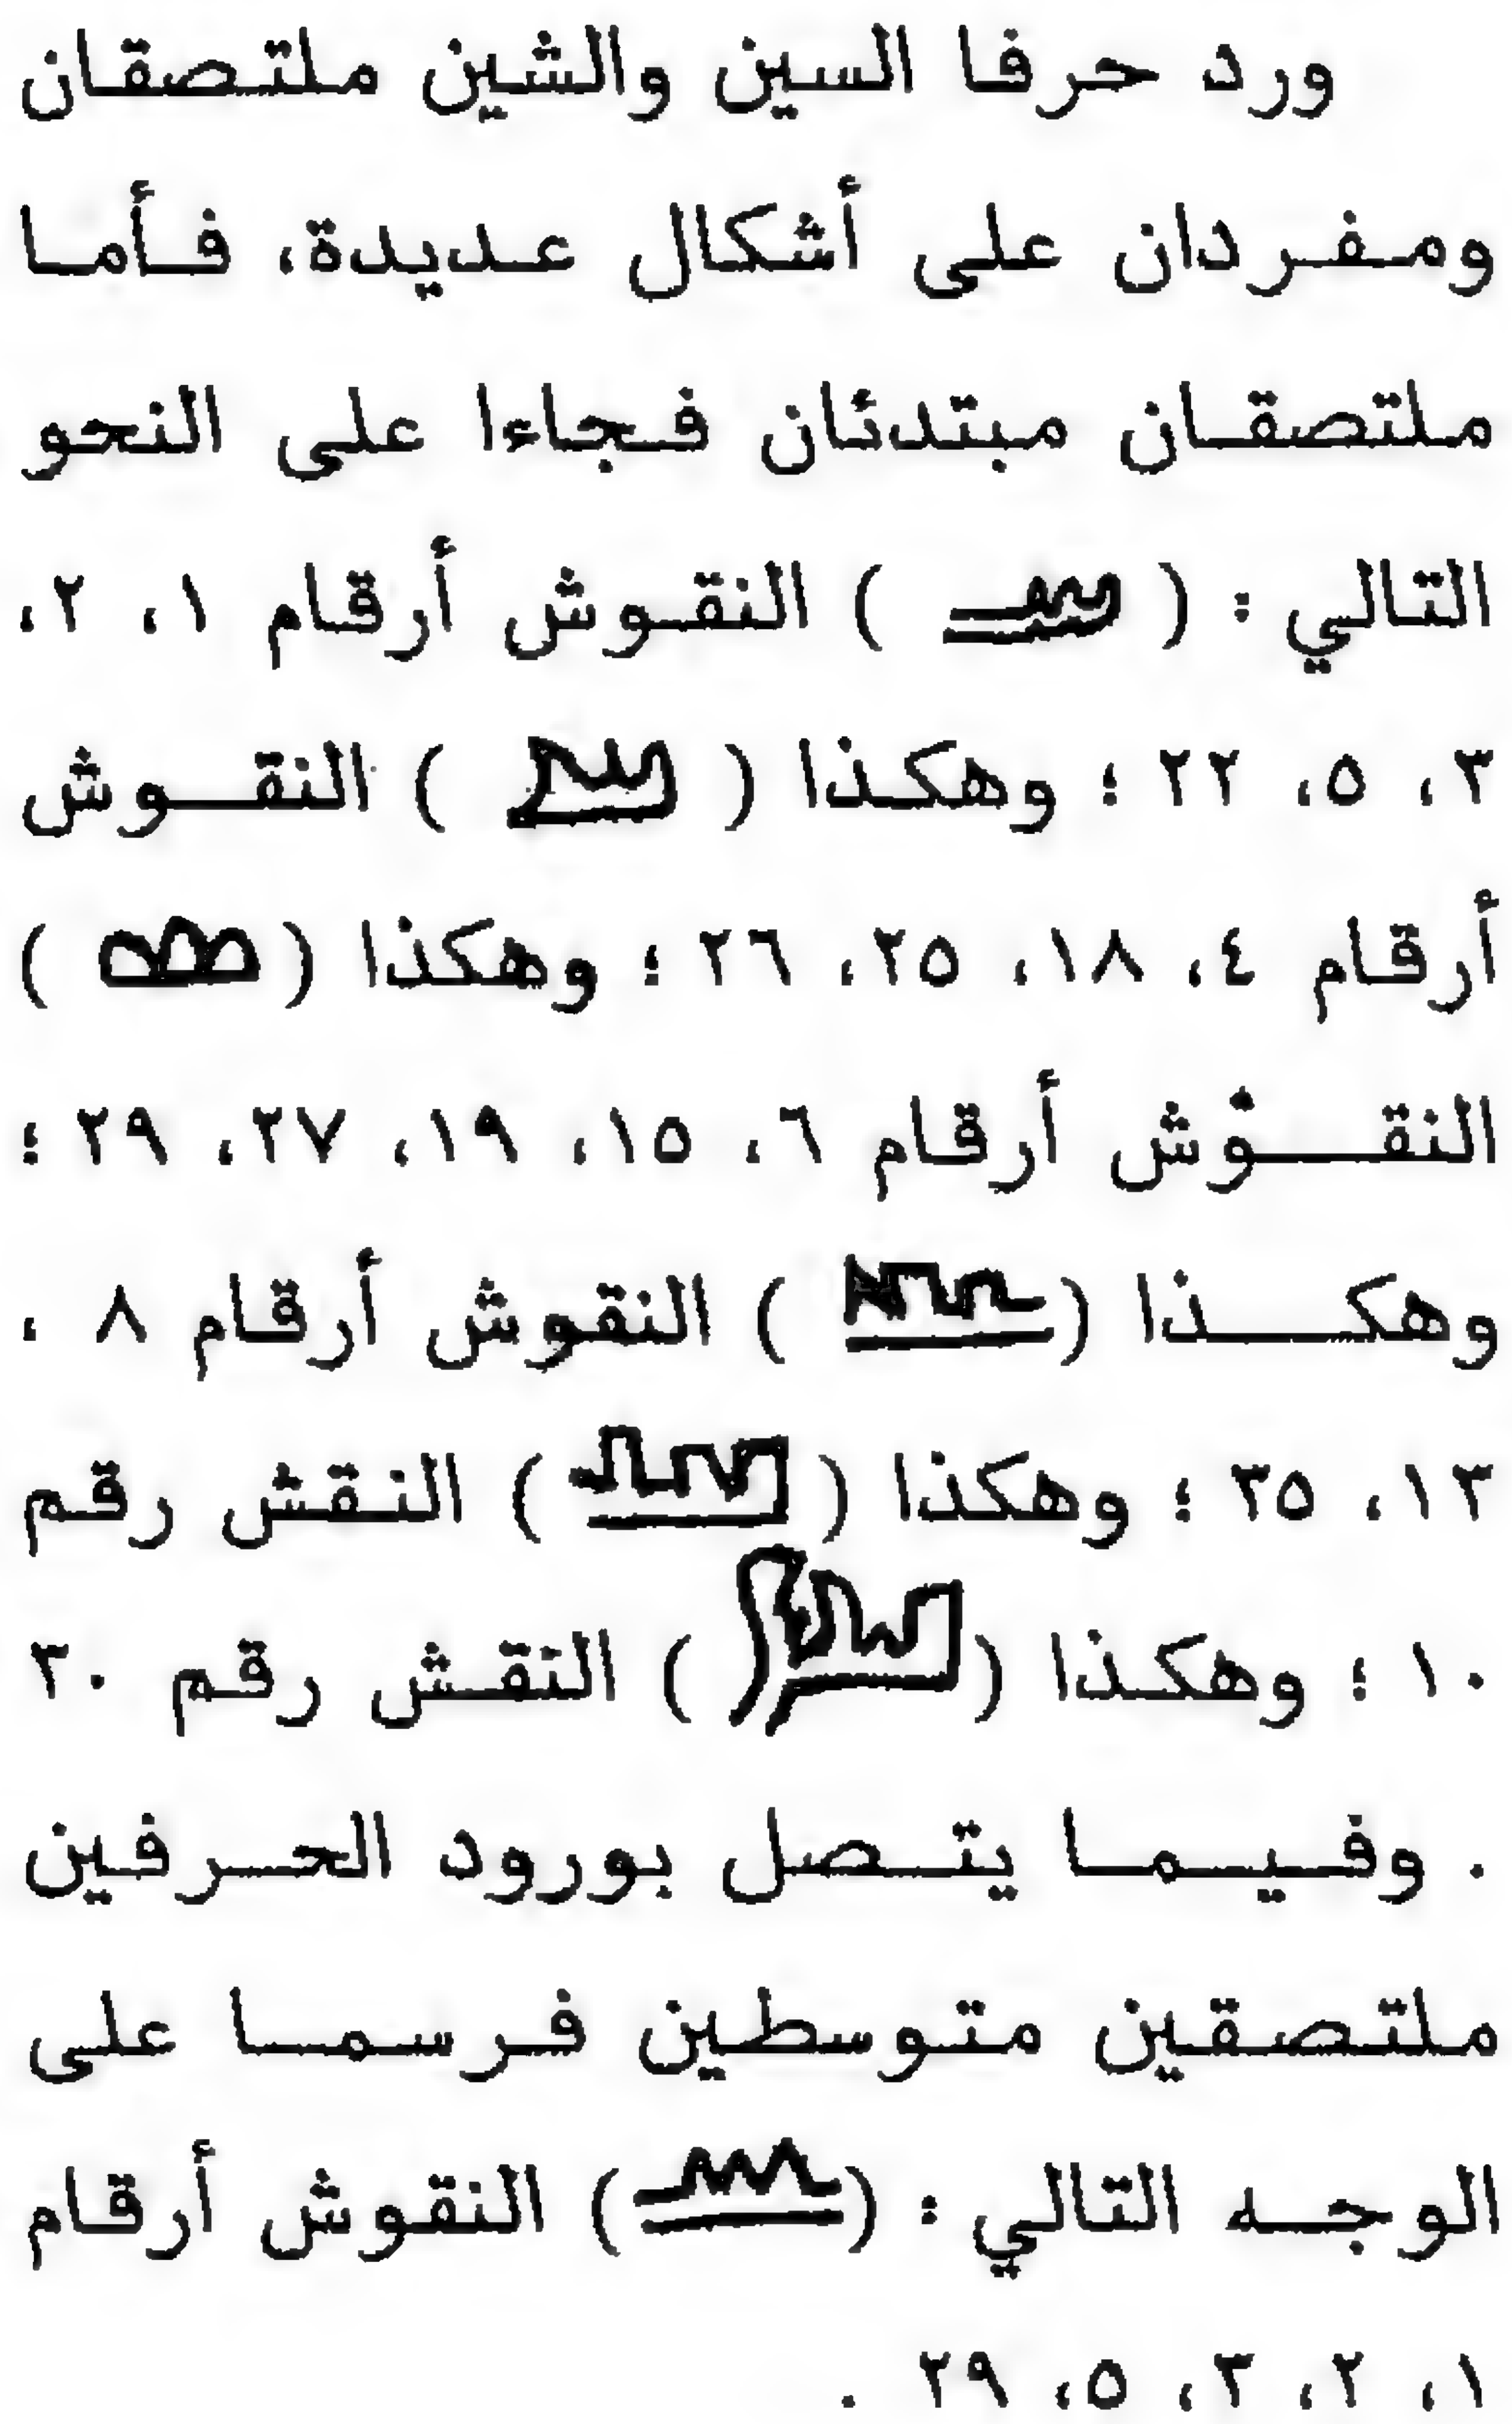 ورد حرفا السين والشين ملتصقان
ومفردان على أشكال عديدة، فأما
ملتصقان مبتدئان فجاءا على النحو
التالي : ( ) النقوش أرقام ١، ٢،
٣، ٥، ٢٢ ؛ وهكذا ( ) النقوش
أرقام ٤، ١٨، ٢٥، ٢٦ ؛ وهكذا ( )
النقوش أرقام ٦، ١٥، ١٩، ٢٧، ٢٩ ؛
وهكذا ( ) النقوش أرقام ٨ ،
١٣، ٣٥ ؛ وهكذا ( ) النقش رقم
١٠ ؛ وهكذا ( ) النقش رقم ٣٠
. وفيما يتصل بورود الحرفين
ملتصقين متوسطين فرسما على
الوجه التالي : ( ) النقوش أرقام
١، ٢، ٣، ٥، ٢٩ .